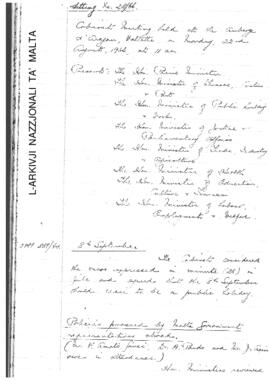 Sitting No. 20/66.
Cabinet Meeting held at the Auberge
d'Aragon, Valletta on Monday, 22nd
August, 1966, at 11 am
Present: The Hon. Prime Minister
The Hon. Minister of Finance, Customs
& Port
The Hon. Minister of Public Building
& Works.
The Hon. Minister of Justice &
Parliamentary Affairs
The Hon. Minister of Trade, Industry
& Agriculture
The Hon. Minister of Health
The Hon. Minister of Education,
Culture & Tourism
The Hon. Minister of Labour,
Employment & Welfare
L-ARKIVJI NAZZJONALI TA' MALTA
8th September
The Cabinet considered
the views expressed in minute (28) in
file and agreed that the 8th September
should cease to be a public holiday.
Policies pursued by Malta Government
representatives abroad.
were in attendance)
Hon. Ministers reviewed